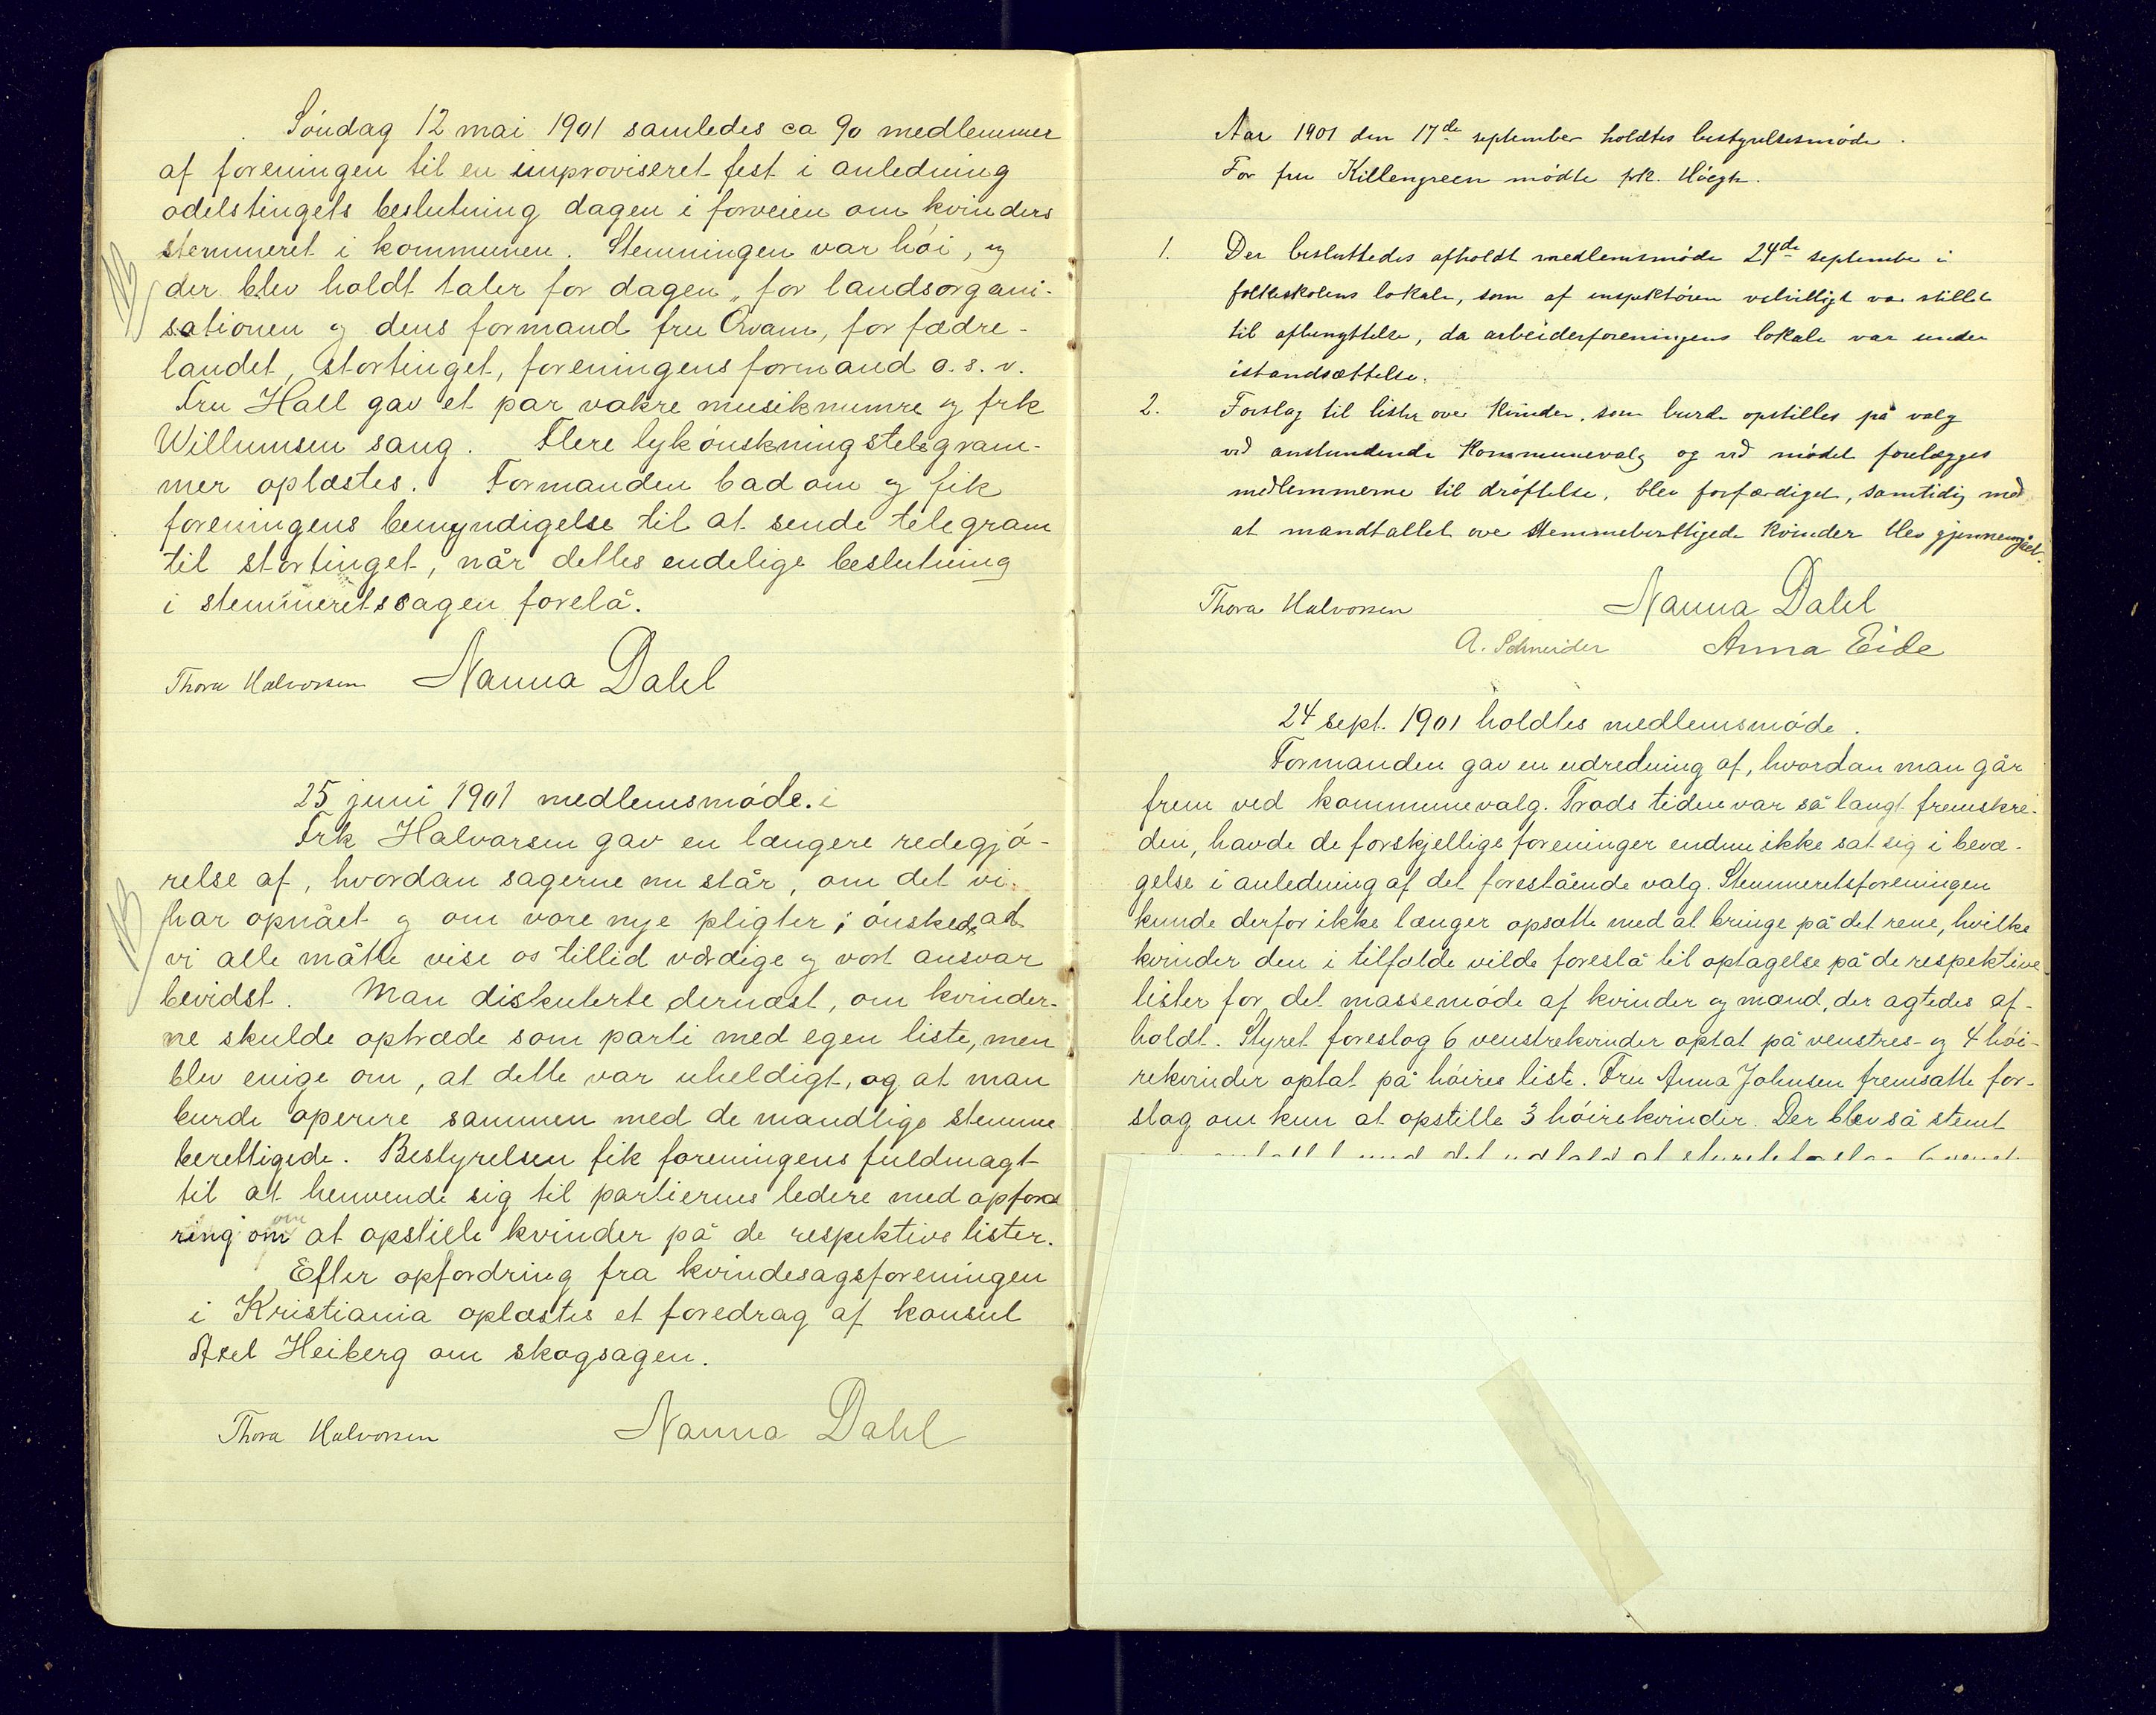 Søndag 12 mai 1901 samledes ca 90 medlemmer
af foreningen til en improviseret fest i anledning
odelstingets beslutning dagen i forveien om kvinders
stemmeret i kommunen. Stemningen var høi, og
NB
der blev holdt taler for dagen, for landsorgani-
sationen og dens formand fru Qvam, for fædre-
landet, stortinget, foreningens formand o. s. v.
Fru Hall gav et par vakre musiknumre og frk
Willumsen sang. Flere lykønskningstelegram-
mer oplæstes. Formanden bad om og fik
foreningens bemyndigelse til at sende telegram
til stortinget, når dettes endelige beslutning
i stemmeretssagen forelå.
Thora Halvorsen Nanna Dahl
25 juni 1901 medlemsmøde. i
Frk Halvorsen gav en længere redegjø-
relse af, hvordan sagerne nu står, om det vi
NB
har opnået og om vore nye pligter; ønskede, at
vi alle måtte vise os tillid værdige og vort ansvar
bevidst. Man diskuterte dernæst, om kvinder-
ne skulde optræde som parti med egen liste, men
blev enige om, at dette var uheldigt, og at man
burde operere sammen med de mandlige stemme
berettigede. Bestyrelsen fik foreningens fuldmagt
til at henvende sig til partiernes ledere med opford
ring om at opstille kvinder på de respektive lister.
Efter opfordring fra kvindesagsforeningen
i Kristiania oplæstes et foredrag af konsul
Axel Heiberg om skogsagen.
Thora Halvorsen Nanna Dahl
Aar 1901 den 17de september holdtes bestyrelsesmøde.
For fru Killengreen mødte frk. Høegh.
1. Der besluttedes afholdt medlemsmøde 24de september i
folkeskolens lokale, som af inspektøren velvilligt var stillet
til afbenyttelse, da arbeiderforeningens lokale var under
istandsættelse.
2. Forslag til lister over kvinder, som burde opstilles på valg
ved anstundende kommunevalg og ved mødet forelægges
medlemmerne til drøftelse, blev forfærdiget, samtidig med
at mandtallet over stemmeberettigede kvinder blev gjennemgået.
Thora Halvorsen Nanna Dahl
A. Schneider Anna Eide
24 sept. 1901 holdtes medlemsmøde.
Formanden gav en udredning af, hvordan man går
frem ved kommunevalg. Trods tiden var så langt fremskre-
den, havde de forskjellige foreninger endnu ikke sat sig i bevæ-
gelse i anledning af det forestående valg. Stemmeretsforeningen
kunde derfor ikke længer opsætte med at bringe på det rene, hvilke
kvinder den i tilfælde vilde foreslå til optagelse på de respektive
lister for det massemøde af kvinder og mænd, der agtedes af-
holdt. Styret foreslog 6 venstrekvinder optat på venstres- og 4 høi-
rekvinder optat på høires liste. Fru Anna Johnsen fremsatte for-
slag om kun at opstille 3 høirekvinder. Der blev så stemt